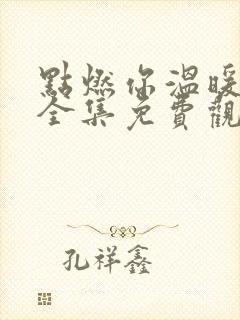 點燃你溫暖
全集免費觀
孔祥鑫